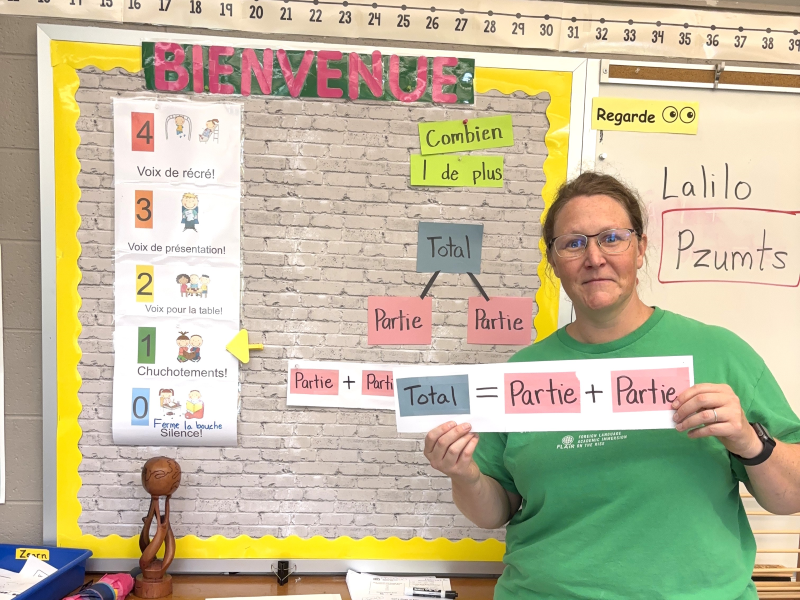 12 13 14 15 16 17 18 19 20 21 22 23 24 25 26 27 28 29 30 31 32 33 34 35 36 37 38 39
BIENVENUE
4
Voix de récré!
3
Voix de présentation!
2
Voix pour la table!
1
Chuchotements!
0
Ferme la bouche
Silence!
Combien
1 de plus
Total
Partie Partie
Partie + Parti
Total = Partie + Partie
Regarde
Lalilo
Pzumts
PLAIR
FOREIGN LANGUAGE
ACADEMIC IMMERSION
ON THE RISE
Zearn